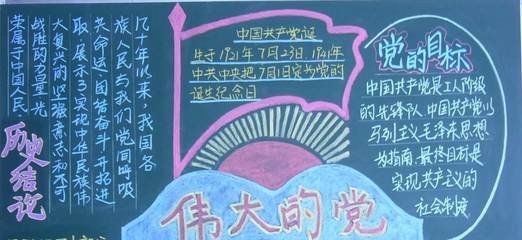 中国共产党诞
生于1921年7月23日 1941年
中共中央把7月1日定为党的
诞生纪念日
党的目标
中国共产党是工人阶级
的先锋队 中国共产党以
马列主义 毛泽东思想
为指南,最终目标是
实现共产主义的
社会制度
几十年以来,我国各
族人民与我们党同呼吸
共命运,团结奋斗开拓进
取,展示了中华民族伟
大复兴的坚强意志和不可
战胜的力量 光
荣属于中国人民
历史结论
伟大的党